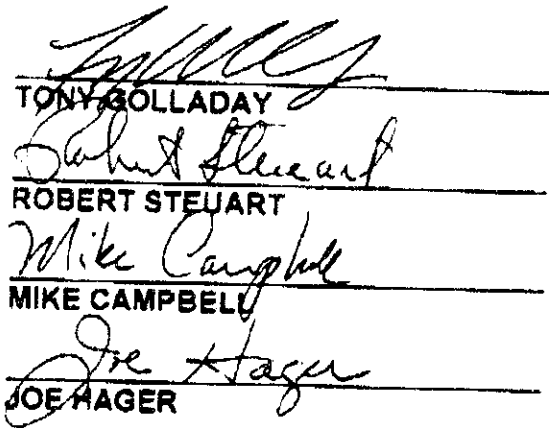 TONY GOLLADAY
Robert Steuart
ROBERT STEUART
Mike Campbell
MIKE CAMPBELL
Joe Hager
JOE HAGER